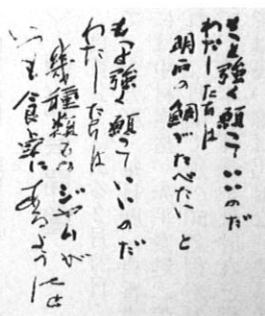 もっと強く願っていいのだ
わたしたちは
明石の鯛がたべたいと
もっと強く願っていいのだ
わたしたちは
幾種類ものジャムが
いつも食卓にあるようにと